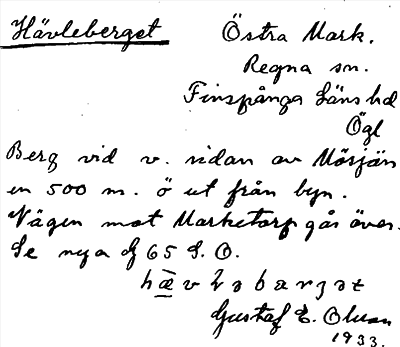 Hävleberget Östra Mark.
Regna sn.
Finspånga Läns hd
Ögl
Berg vid v. sidan av Mörsjön
en 500 m. ö ut från byn.
Vägen mot Marketorp går över.
Se nya 65 S.O.
Gustaf E. Olsson
1933.